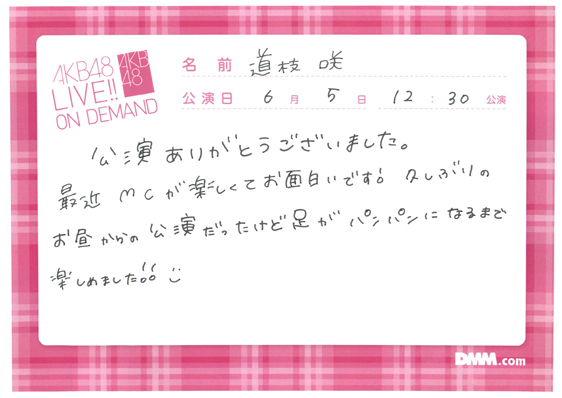 AKB48
LIVE!!
ON DEMAND
AKB
48
名前 道枝 咲
公演日 6月 5日 12:30 公演
公演ありがとうございました。
最近MCが楽しくてお面白いです! 久しぶりの
お昼からの公演だったけど足がパンパンになるまで
楽しめました!!
DMM.com